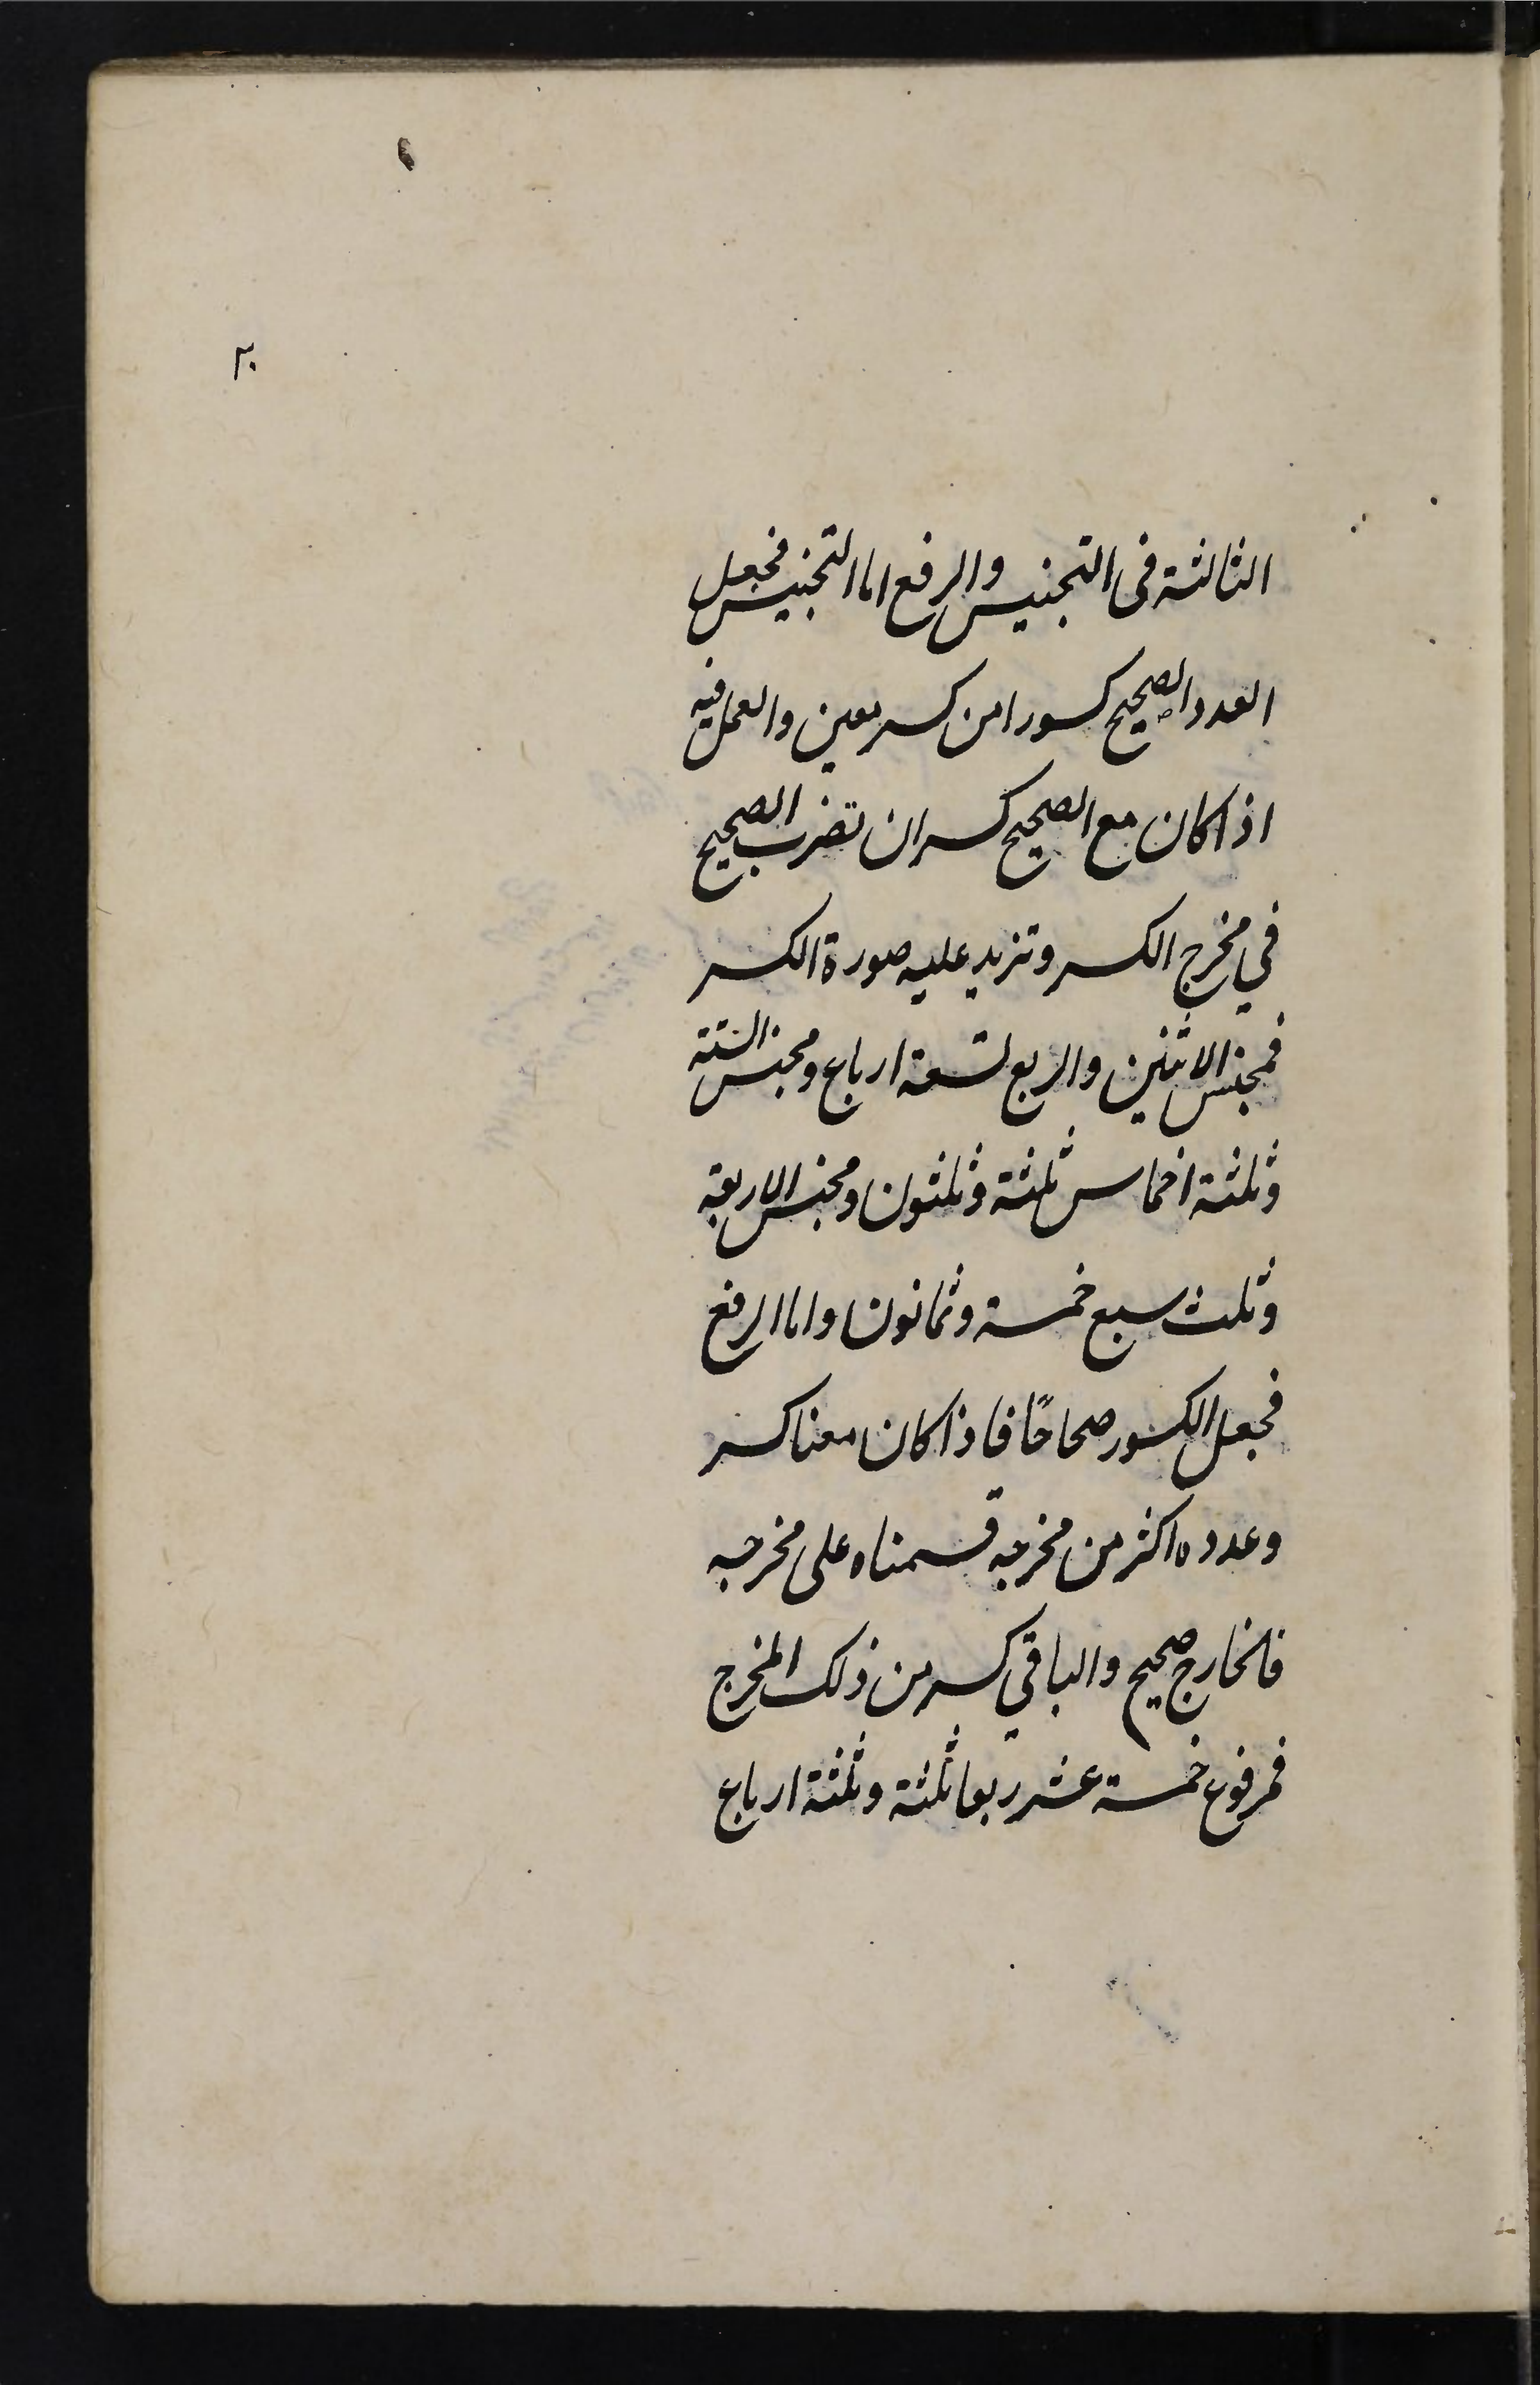 ٢٠
الثالثة فى التجنيس والرفع اما التجنيس فجعل
العدد الصحيح كسورا من كسر معين والعمل فيه
اذا كان مع الصحيح كسر ان تضرب الصحيح
في مخرج الكسر وتزيد عليه صورة الكسر
فمجنس الاثنين والربع تسعة ارباع ومجنس الستة
وثلثة اخماس ثلثة وثلثون ومجنس الاربعة
وثلث سبع خمسة وثمانون واما الرفع
فجعل الكسور صحاحًا فاذا كان معنا كسر
وعدده اكثر من مخرجه قسمناه على مخرجه
فالخارج صحيح والباقي كسر من ذلك المخرج
فمرفوع خمسة عشر ربعا ثلثة وثلثة ارباع